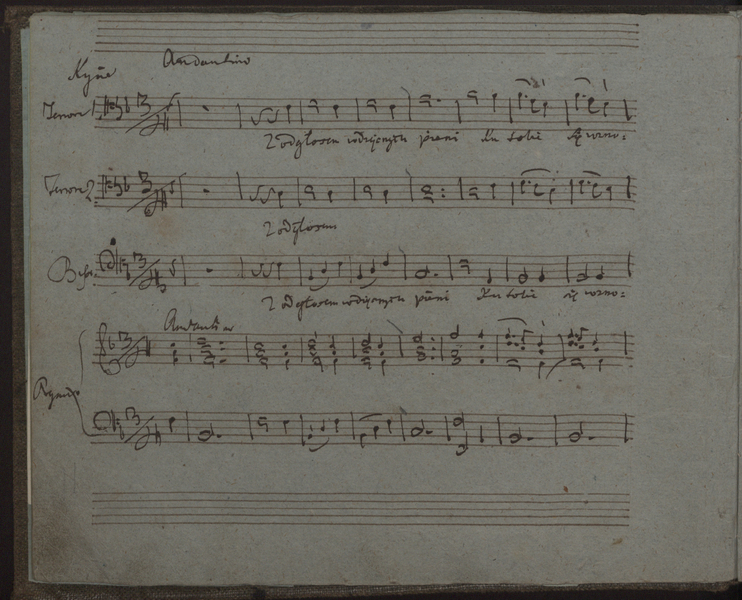 Andantino
Kyrie
Tenor 1
Z odgłosem wdzięcznych pieni Ku tobie się wzno=
Tenor 2
Z odgłosem
Basso
Z odgłosem wdzięcznych pieni Ku tobie się wzno=
Andantino
Organo